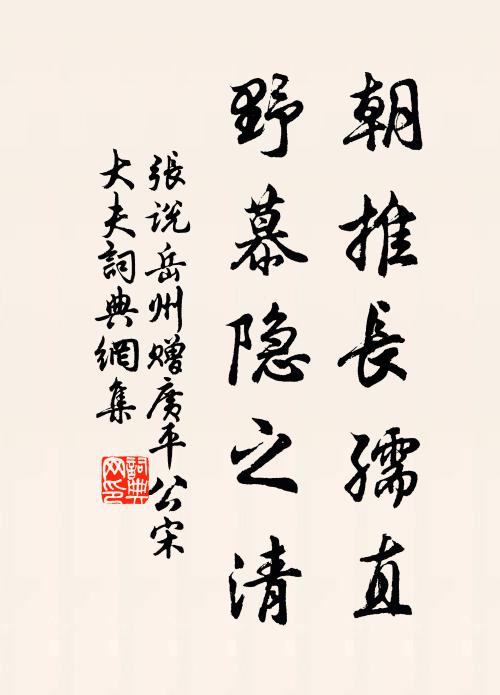 朝推長孺直
野慕隐之清
張说岳州贈廣平公宋
大夫詞典網集
詞典
网印